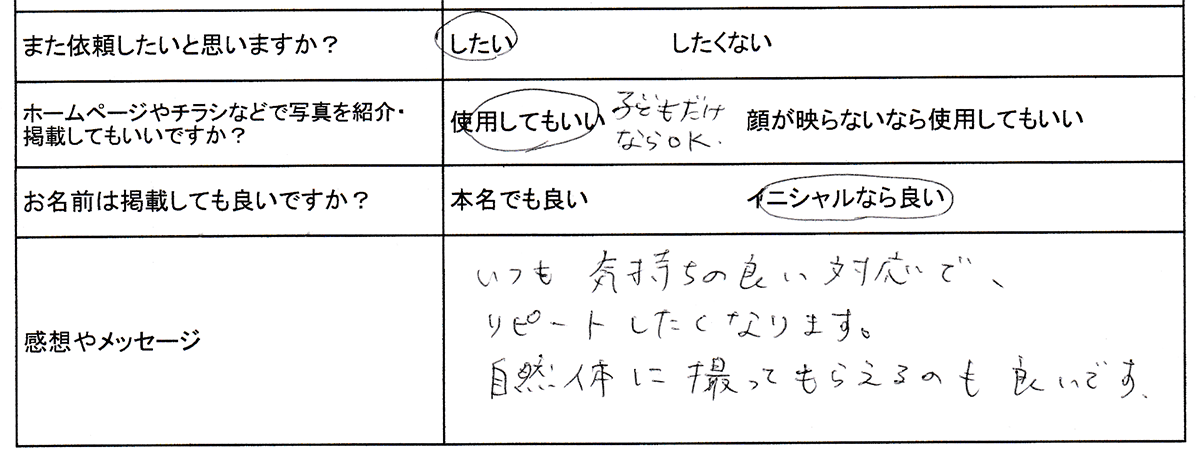 また依頼したいと思いますか？ したい したくない
ホームページやチラシなどで写真を紹介・
掲載してもいいですか？ 使用してもいい 子どもだけ
ならOK. 顔が映らないなら使用してもいい
お名前は掲載しても良いですか？ 本名でも良い イニシャルなら良い
感想やメッセージ
いつも 気持ちの良い 対応で、
リピートしたくなります。
自然体に 撮ってもらえるのも 良いです、